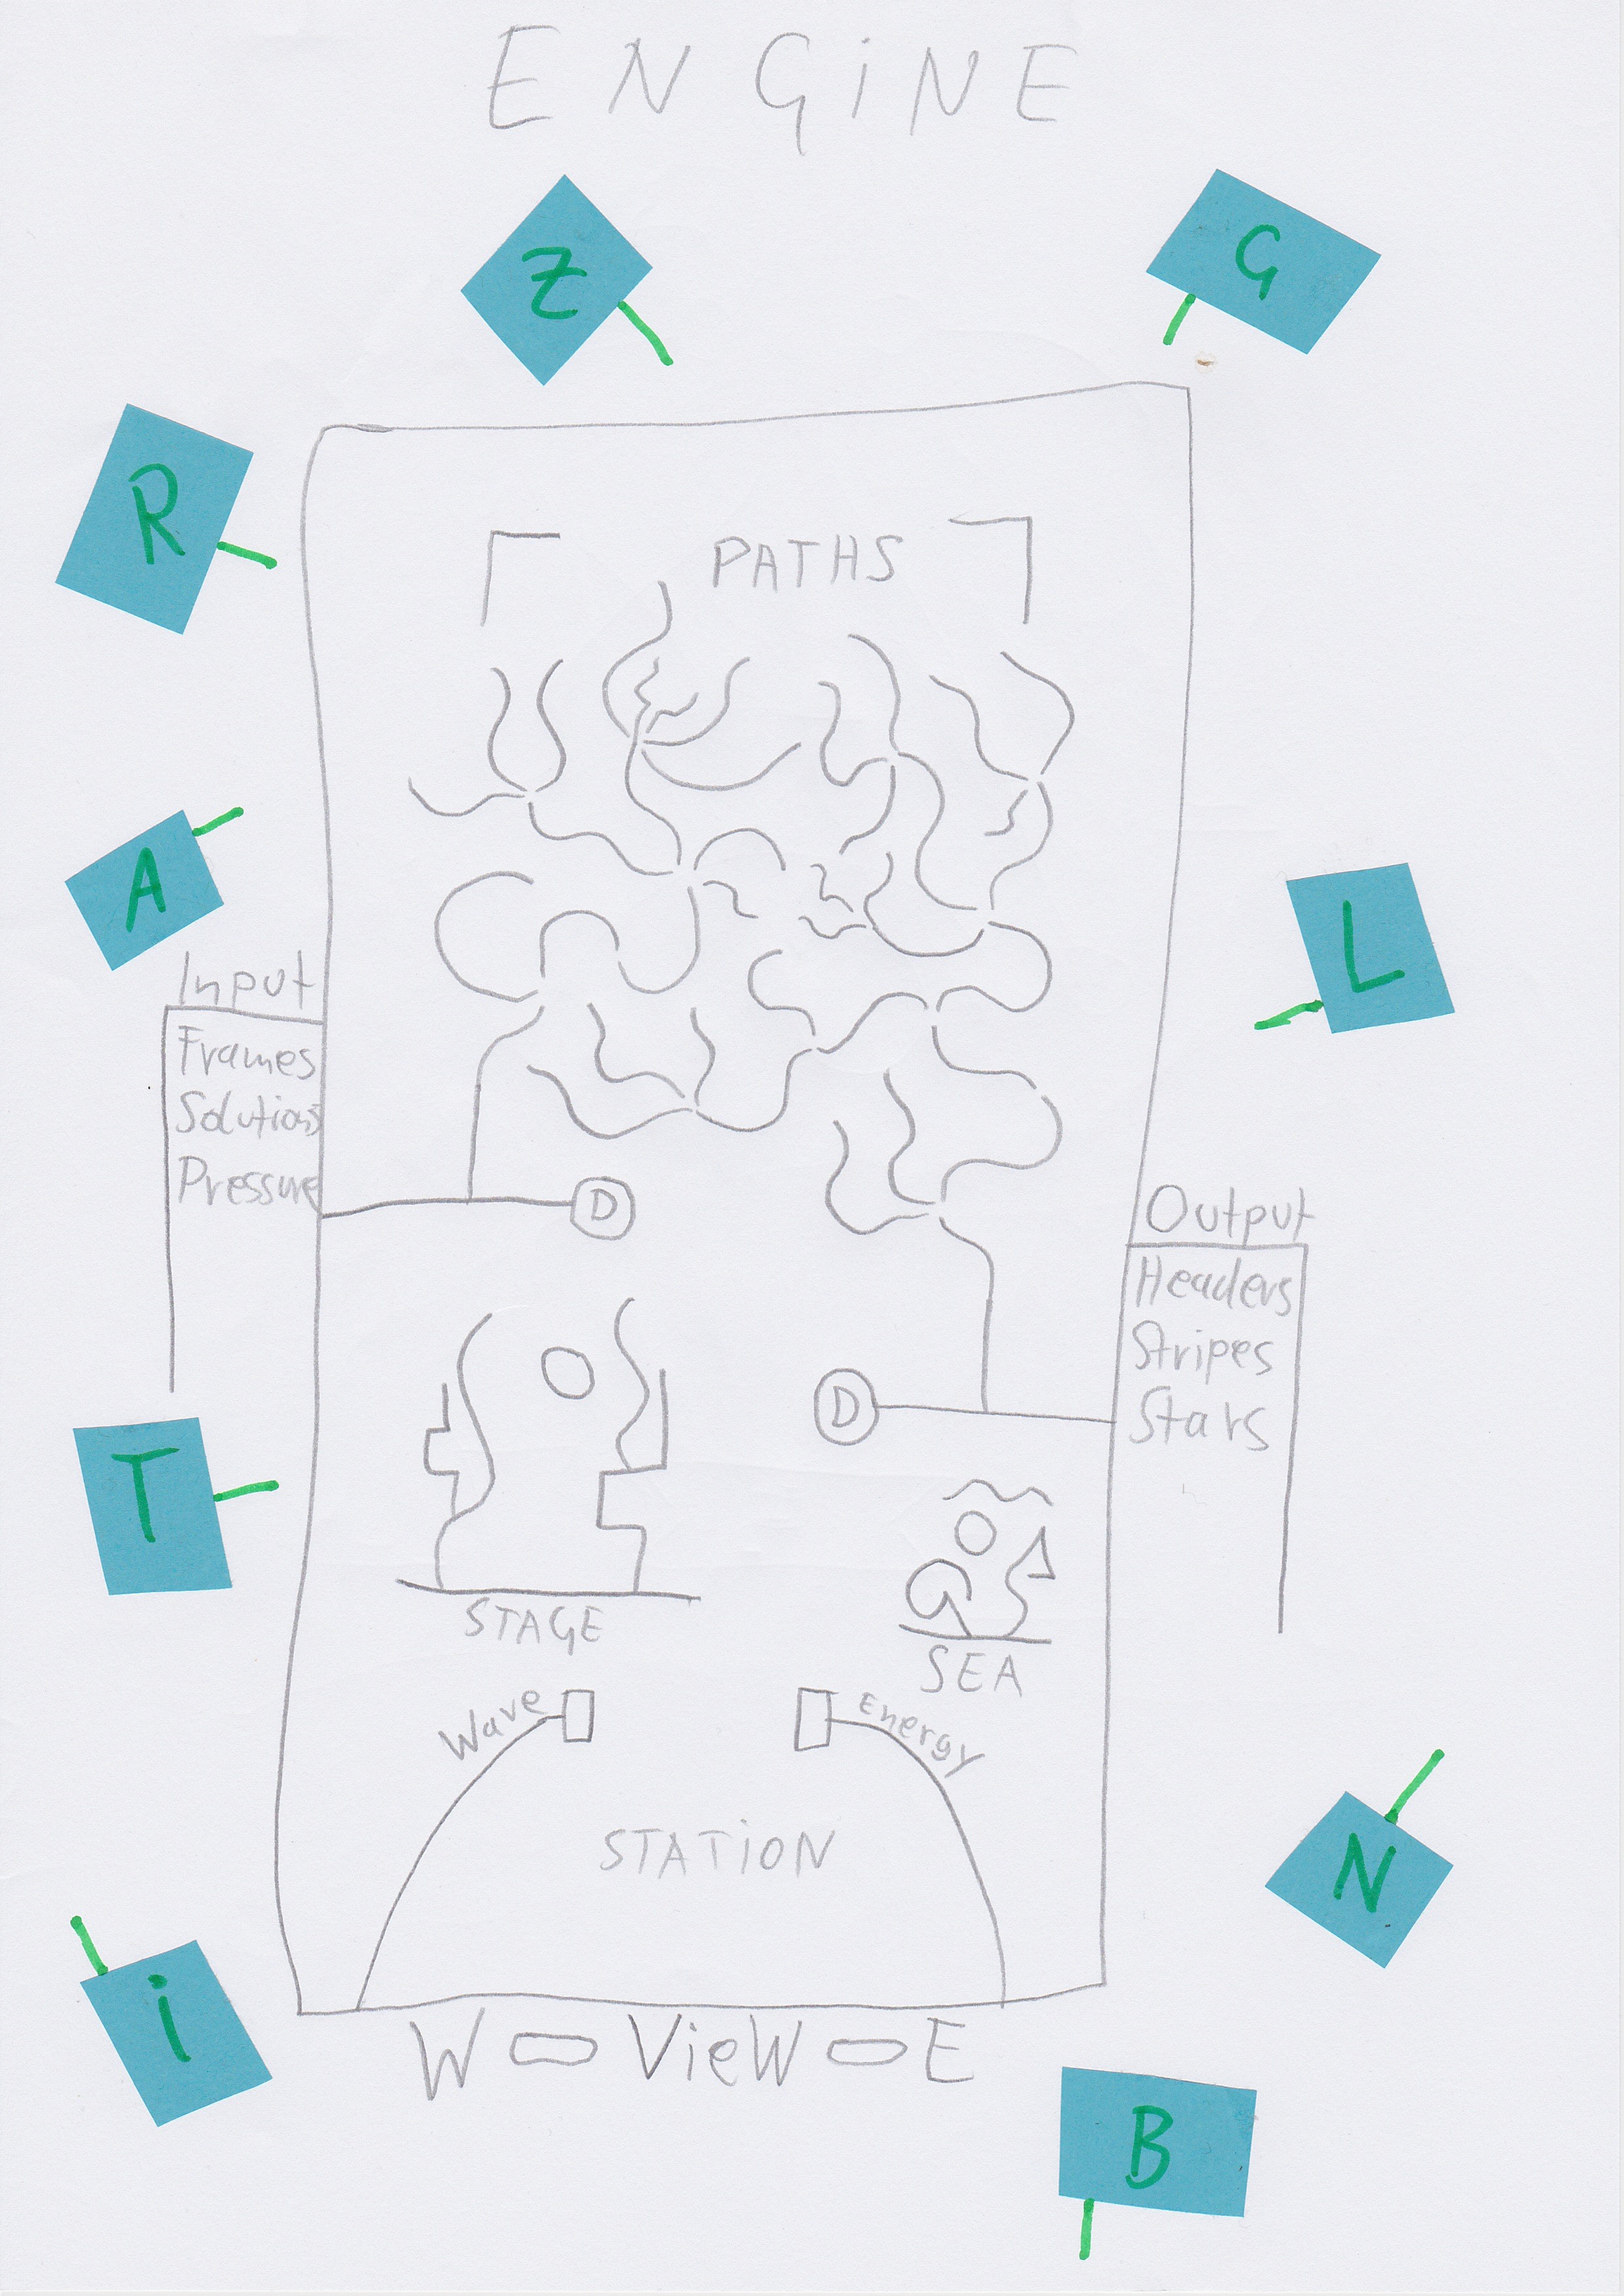 ENGiNE
Z
G
R
PATHS
A
L
Input
Frames
Solutions
Pressure
D
Output
Headers
Stripes
Stars
D
T
STAGE
SEA
Wave
Energy
STATiON
N
i
W VieW E
B